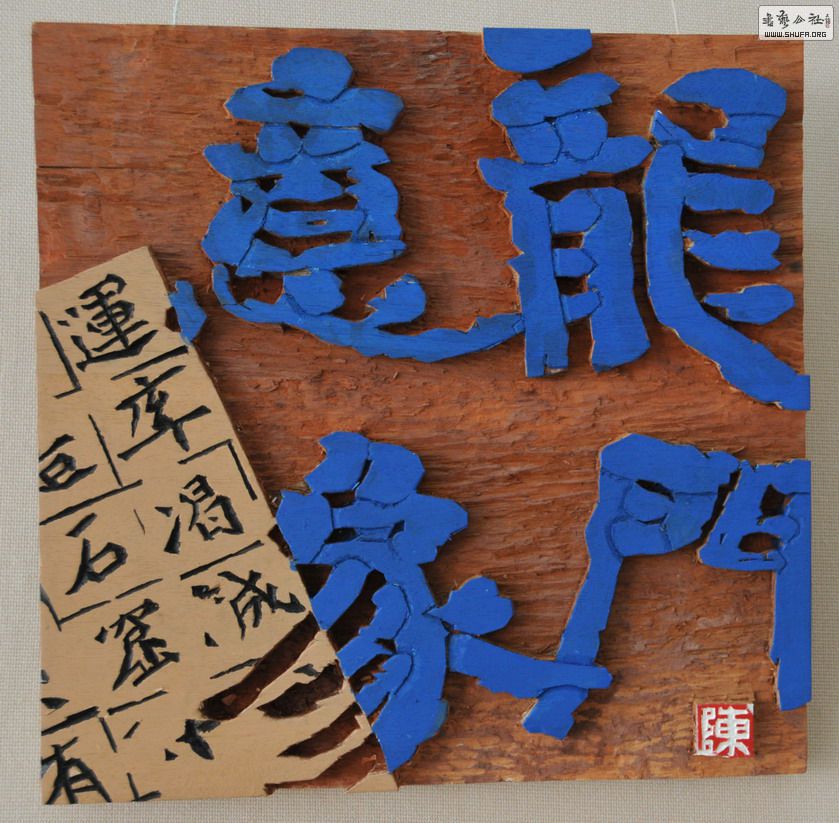 龍門
意象
運
渴
石窟
有
陳
書藝公社
WWW.SHUFA.ORG